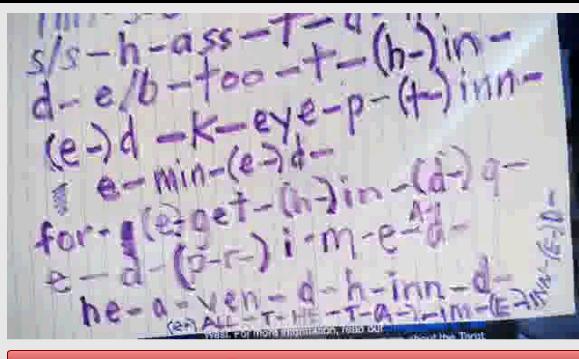 s/s-h-ass-T-a-
d-e/b-too-t-(h-)in-
(e-)d-k-eye-p-(t-)inn-
e-min-(e-)d-
for-(e-)get-(h-)in-(d-)g-
e-d-(p-r-)i-m-e-d-
he-a-ven-d-h-inn-d-
(e-) ALL-T-HE-T-a-)-im-(E-)INN-(E-)D-
West. For more information, read our
about the Tarot